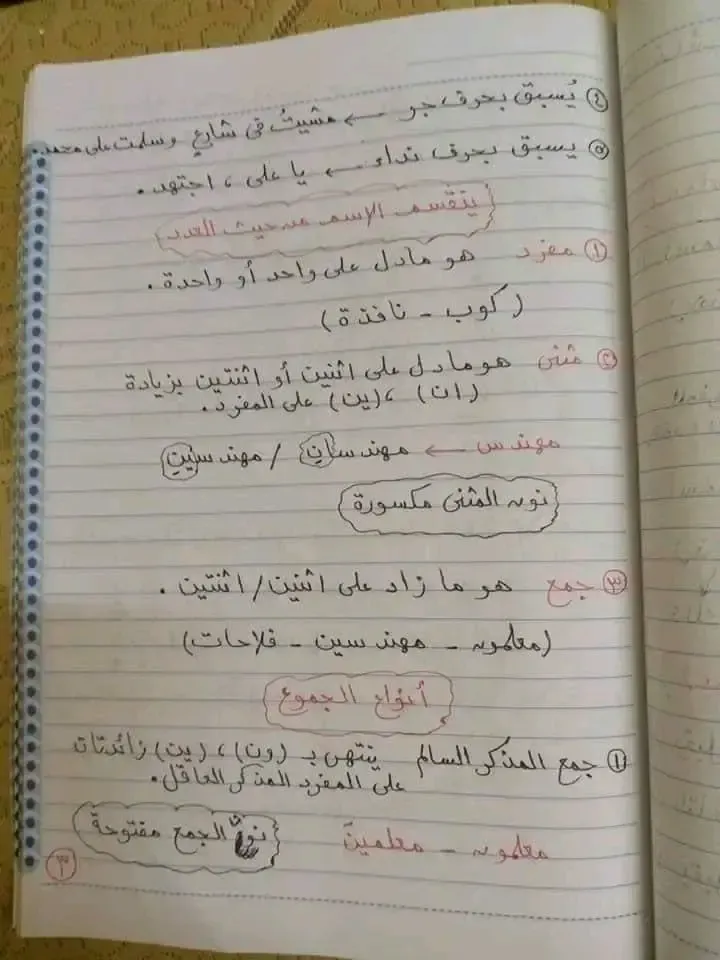 ٤ يُسبق بحرف جر ← مشيتُ في شارعٍ وسلمت على محمد.
٥ يسبق بحرف نداء ← يا على ، اجتهد.
ينقسم الإسم من حيث العدد
١ مفرد هو مادل على واحد أو واحدة.
(كوب - نافذة)
٢ مثنى هو مادل على اثنين أو اثنتين بزيادة
(ان) ،(ين) على المفرد.
مهندس ← مهندسانِ / مهندسينِ
نون المثنى مكسورة
٣ جمع هو ما زاد على اثنين/اثنتين.
(معلمون - مهندسين - فلاحات)
أنواع الجموع
١ جمع المذكر السالم ينتهى بـ (ون) ، (ين) زائدتان
على المفرد المذكر العاقل.
معلمون - معلمينَ نون الجمع مفتوحة
٣